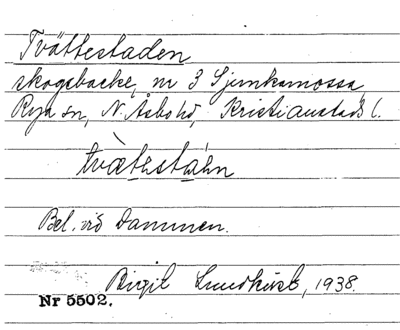 Tvättestaden
skogsbacke, nr 3 Sjunkamossa,
Rya sn, N. Åsbo hd, Kristianstads l.
tvætesta̍n
Bel. vid Dammen.
Birgit Lundkvist, 1938.
Nr 5502.